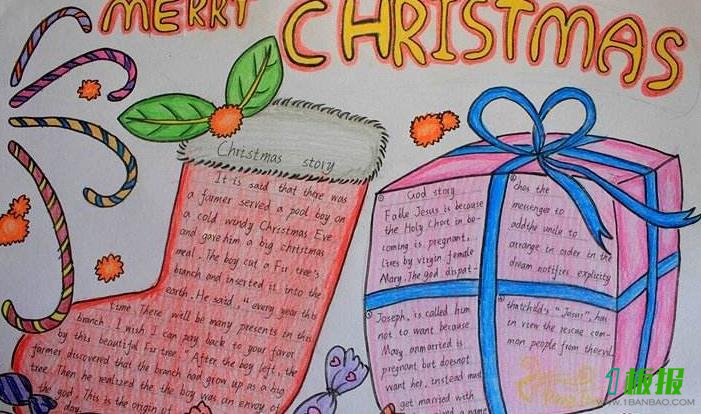 MERRY CHRISTMAS
Christmas story
It is said that there was
a farmer served a pool boy on
a cold windy Christmas Eve
and gave him a big christmas
meal. The boy cut a Fir tree's
branch and inserted it into the
earth. He said, " every year this
time There will be many presents in this
branch. I wish I can pay back to your favor
by this beautiful Fir tree." After the boy left, the
farmer discovered that the branch had grow up as a big
tree. Then he realized the the boy was an envoy of
the god. This is the origin of
day.
① God story
Fable Jesus is because
the Holy Ghost in be-
coming is pregnant,
lives by virgin female
Mary. The god dispat-
② ches the
messenger to
addthe uncle to
arrange in order in the
dream notifies explicitly
③ Joseph, is called him
not to want because
Mary anmarried is
pregnant but doesnot
want her, instead must
get married with
and a name
④ thatchild's "Jesus", has
in view the rescue com-
mon people from theevil
1板报
WWW.1BANBAO.COM